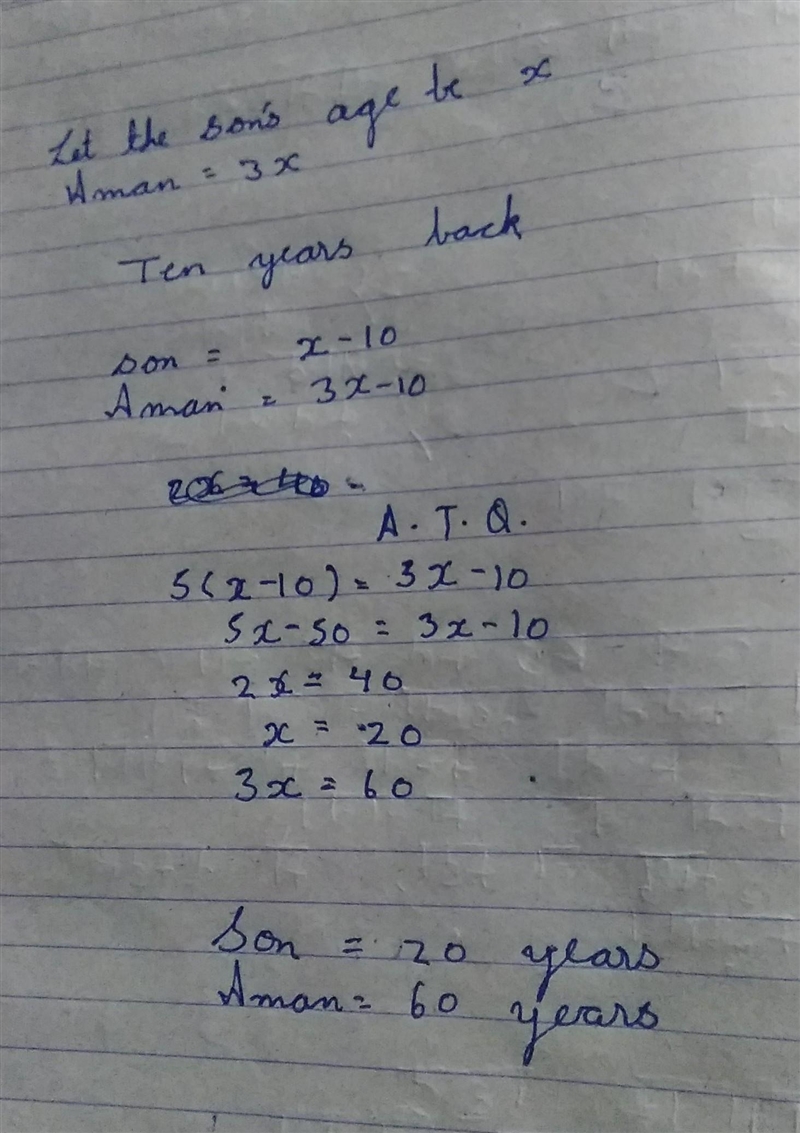 Let the son's age be x
Aman = 3x
Ten years back
son = x-10
Aman = 3x-10
A.T.Q.
5(x-10) = 3x-10
5x-50 = 3x-10
2x = 40
x = 20
3x = 60
Son = 20 years
Aman = 60 years